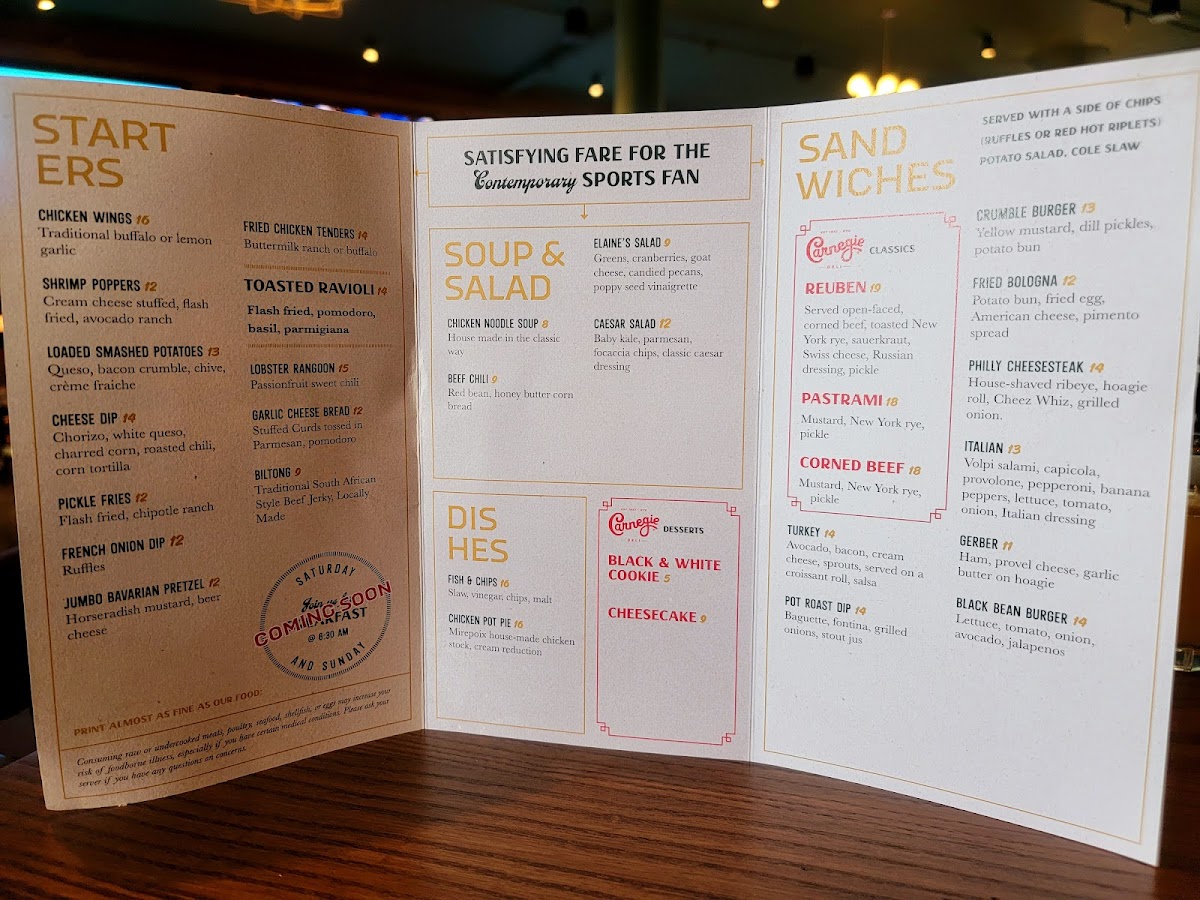 START
ERS
CHICKEN WINGS 16
Traditional buffalo or lemon
garlic
SHRIMP POPPERS 12
Cream cheese stuffed, flash
fried, avocado ranch
LOADED SMASHED POTATOES 13
Queso, bacon crumble, chive,
crème fraiche
CHEESE DIP 14
Chorizo, white queso,
charred corn, roasted chili,
corn tortilla
PICKLE FRIES 12
Flash fried, chipotle ranch
FRENCH ONION DIP 12
Ruffles
JUMBO BAVARIAN PRETZEL 12
Horseradish mustard, beer
cheese
FRIED CHICKEN TENDERS 14
Buttermilk ranch or buffalo
TOASTED RAVIOLI 14
Flash fried, pomodoro,
basil, parmigiana
LOBSTER RANGOON 15
Passionfruit sweet chili
GARLIC CHEESE BREAD 12
Stuffed Curds tossed in
Parmesan, pomodoro
BILTONG 9
Traditional South African
Style Beef Jerky, Locally
Made
SATURDAY
Join us
COMING SOON
@ 6:30 AM
AND SUNDAY
PRINT ALMOST AS FINE AS OUR FOOD:
Consuming raw or undercooked meats, poultry, seafood, shellfish, or eggs may increase your
risk of foodborne illness, especially if you have certain medical conditions. Please ask your
server if you have any questions on concerns.
SATISFYING FARE FOR THE
Contemporary SPORTS FAN
SOUP &
SALAD
CHICKEN NOODLE SOUP 8
House made in the classic
way
BEEF CHILI 9
Red bean, honey butter corn
bread
ELAINE'S SALAD 9
Greens, cranberries, goat
cheese, candied pecans,
poppy seed vinaigrette
CAESAR SALAD 12
Baby kale, parmesan,
focaccia chips, classic caesar
dressing
DIS
HES
FISH & CHIPS 16
Slaw, vinegar, chips, malt
CHICKEN POT PIE 16
Mirepoix house-made chicken
stock, cream reduction
Carnegie DESSERTS
DELI
BLACK & WHITE
COOKIE 5
CHEESECAKE 9
SAND
WICHES
SERVED WITH A SIDE OF CHIPS
(RUFFLES OR RED HOT RIPLETS)
POTATO SALAD, COLE SLAW
Carnegie CLASSICS
DELI
REUBEN 19
Served open-faced,
corned beef, toasted New
York rye, sauerkraut,
Swiss cheese, Russian
dressing, pickle
PASTRAMI 18
Mustard, New York rye,
pickle
CORNED BEEF 18
Mustard, New York rye,
pickle
TURKEY 14
Avocado, bacon, cream
cheese, sprouts, served on a
croissant roll, salsa
POT ROAST DIP 14
Baguette, fontina, grilled
onions, stout jus
CRUMBLE BURGER 13
Yellow mustard, dill pickles,
potato bun
FRIED BOLOGNA 12
Potato bun, fried egg,
American cheese, pimento
spread
PHILLY CHEESESTEAK 14
House-shaved ribeye, hoagie
roll, Cheez Whiz, grilled
onion.
ITALIAN 13
Volpi salami, capicola,
provolone, pepperoni, banana
peppers, lettuce, tomato,
onion, Italian dressing
GERBER 11
Ham, provel cheese, garlic
butter on hoagie
BLACK BEAN BURGER 14
Lettuce, tomato, onion,
avocado, jalapenos